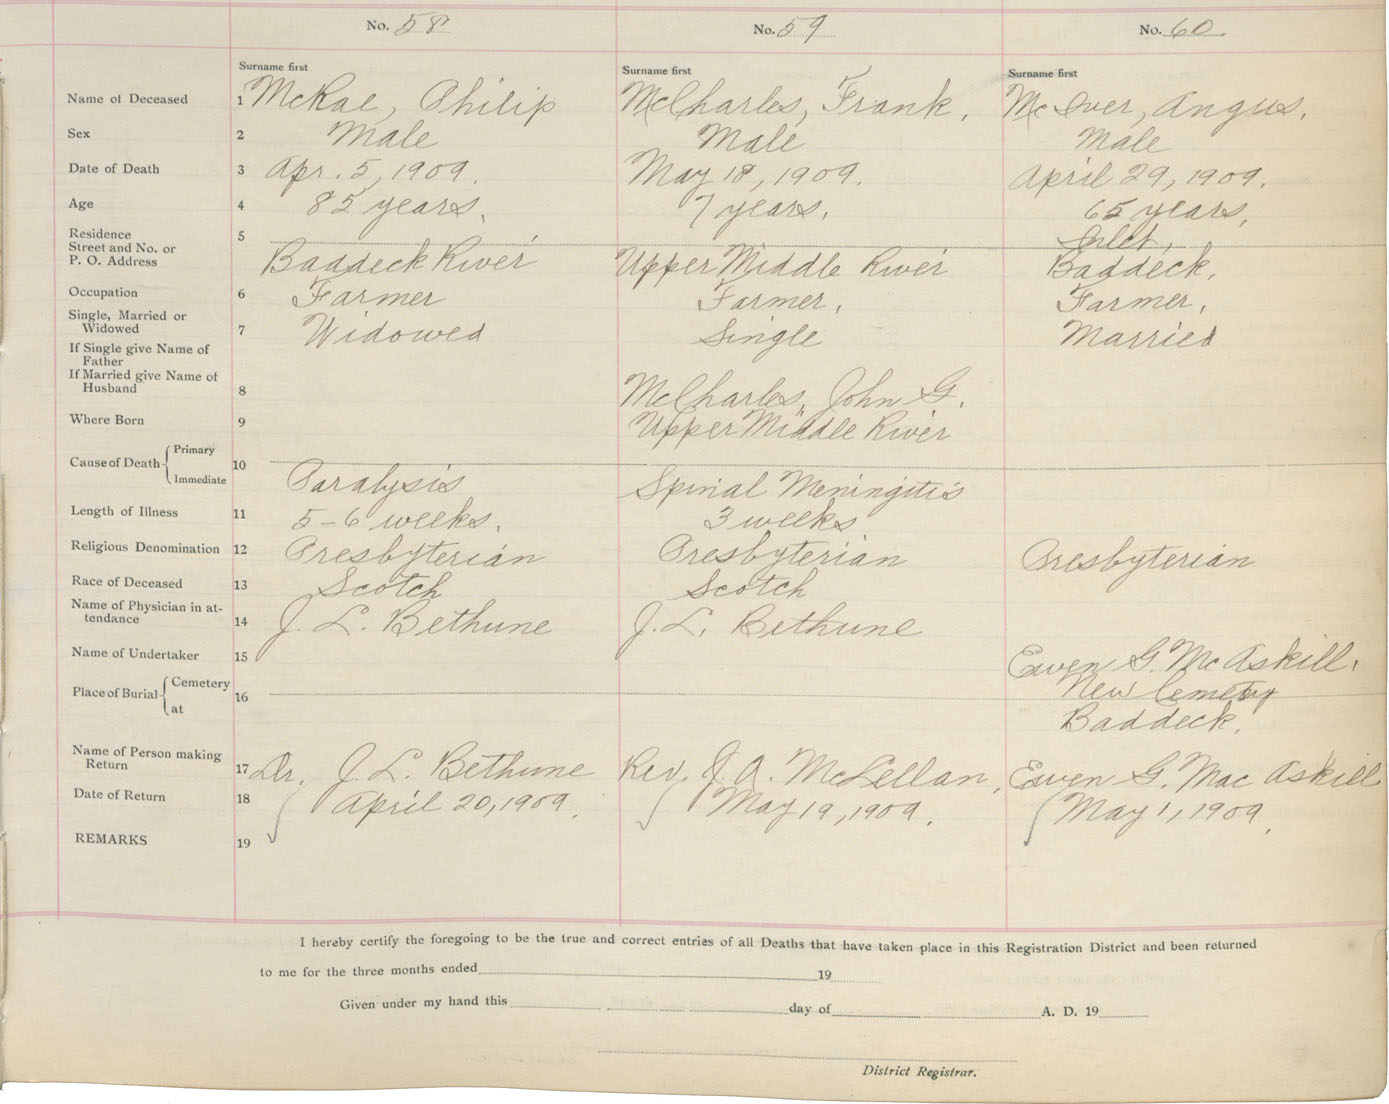 No. 58 No. 59 No. 60.
Surname first Surname first Surname first
Name of Deceased 1 McRae, Philip McCharles, Frank. McIver, Angus.
Sex 2 Male Male Male
Date of Death 3 Apr. 5, 1909. May 18, 1909. April 29, 1909.
Age 4 85 years. 7 years. 65 years.
Residence 5 Inlet,
Street and No. or
P. O. Address Baddeck River Upper Middle River Baddeck.
Occupation 6 Farmer Farmer. Farmer.
Single, Married or
Widowed 7 Widowed Single Married
If Single give Name of
Father
If Married give Name of
Husband 8 McCharles, John G.
Where Born 9 Upper Middle River
Primary
Cause of Death 10
Immediate Paralysis Spinal Meningitis
Length of Illness 11 5-6 weeks. 3 weeks
Religious Denomination 12 Presbyterian Presbyterian Presbyterian
Race of Deceased 13 Scotch Scotch
Name of Physician in at-
tendance 14 J. L. Bethune J. L. Bethune
Name of Undertaker 15 Ewen G. McAskill.
Cemetery New Cemetry
Place of Burial 16
at Baddeck.
Name of Person making
Return 17 Dr. J. L. Bethune Rev. J. A. McLellan, Ewen G. MacAskill
Date of Return 18 April 20, 1909. May 19, 1909. May 1, 1909.
REMARKS 19
I hereby certify the foregoing to be the true and correct entries of all Deaths that have taken place in this Registration District and been returned
to me for the three months ended 19
Given under my hand this day of A. D. 19
District Registrar.